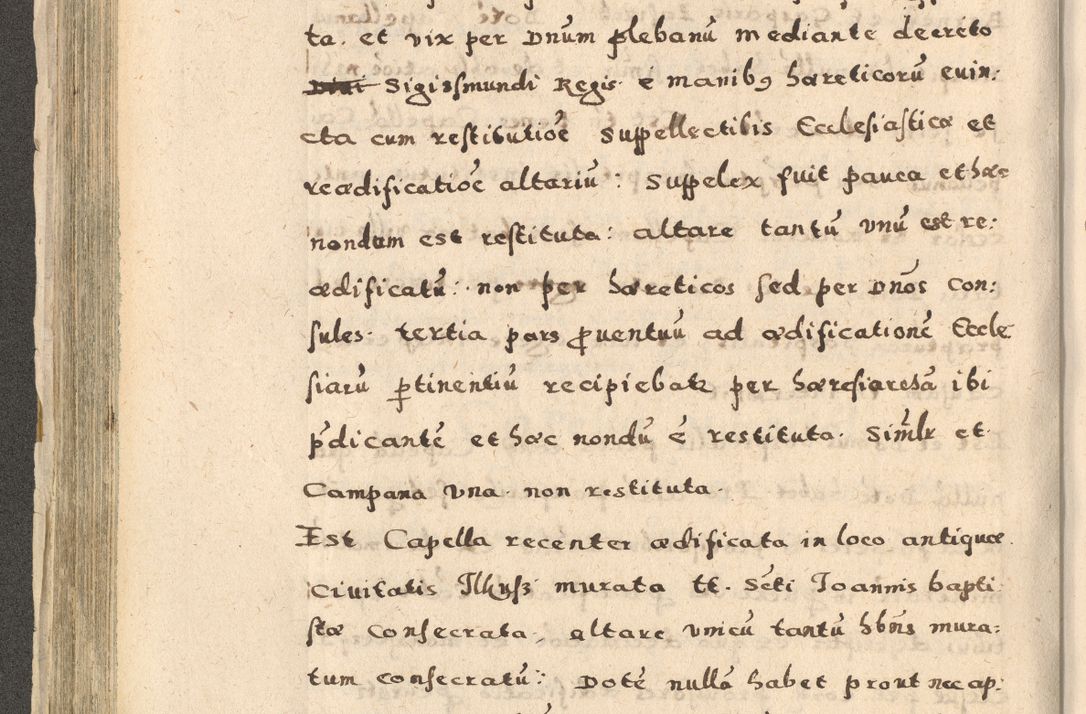 ta. et vix per Dnum plebanū mediante decreto
Sigissmundi Regis e manibꝯ hæreticorū euin:
cta cum restitutiōe Suppellectilis Ecclesiasticæ et
reædificatiōe altariū: Suppelex fuit pauca et hæc
nondum est restituta: altare tantū vnū est re:
ædificatū: non per hæreticos sed per Dnōs Con:
sules. tertia pars ꝓuentuū ad ædificationē Eccle
siarū ꝑtinentiū recipiebatꝛ per hæresiarchā ibi
p̄dicantē et hæc nondū ē restituta. Simlr et
Campana vna non restituta.
Est Capella recenter ædificata in loco antiquæ
Civitatis Ilkusz murata tt. Scti Joannis bapti
stæ Consecrata, altare vnicū tantū hbns mura:
tum consecratū: Dotē nullā habet prout nec ap: